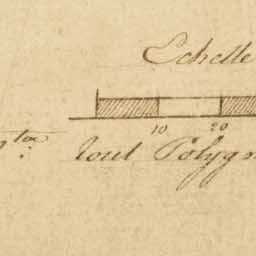 Echelle
10 20
tout Polygn